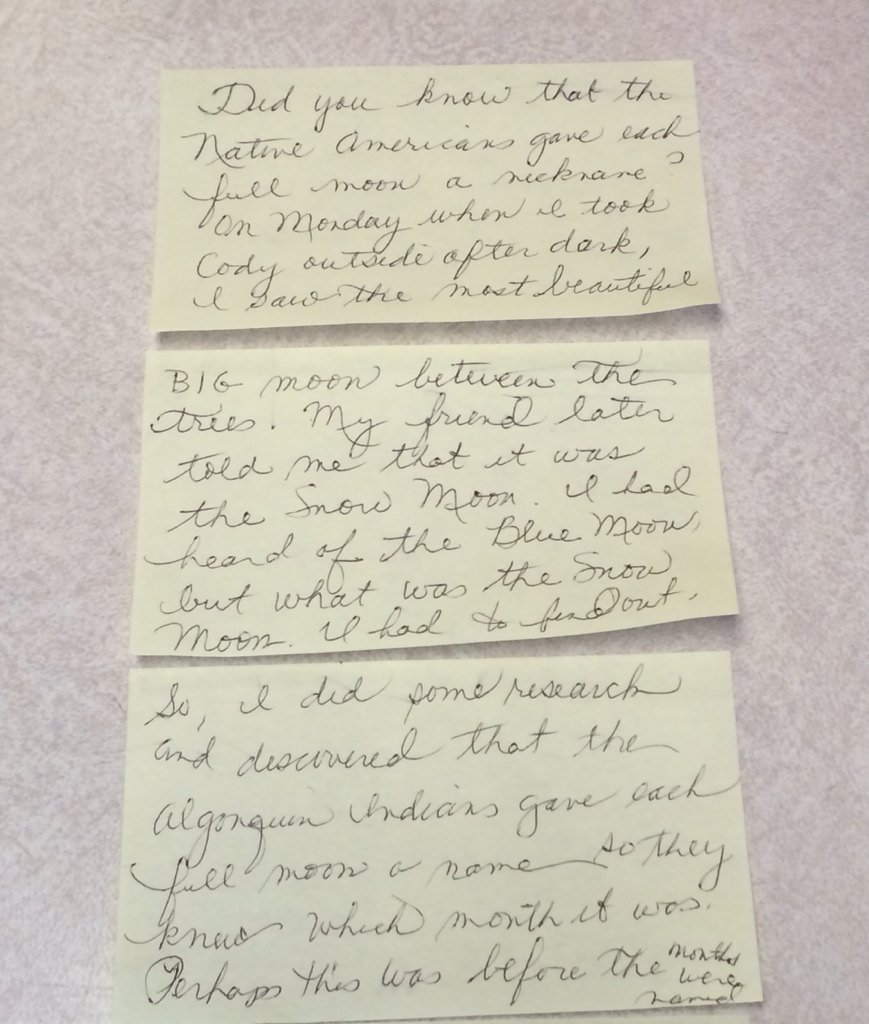 Did you know that the
Native Americans gave each
full moon a nickname?
On Monday when I took
Cody outside after dark,
I saw the most beautiful
BIG moon between the
trees. My friend later
told me that it was
the Snow Moon. I had
heard of the Blue Moon,
but what was the Snow
Moon. I had to find out.
So, I did some research
and discovered that the
Algonquin Indians gave each
full moon a name so they
knew which month it was.
Perhaps this was before the months
were
named